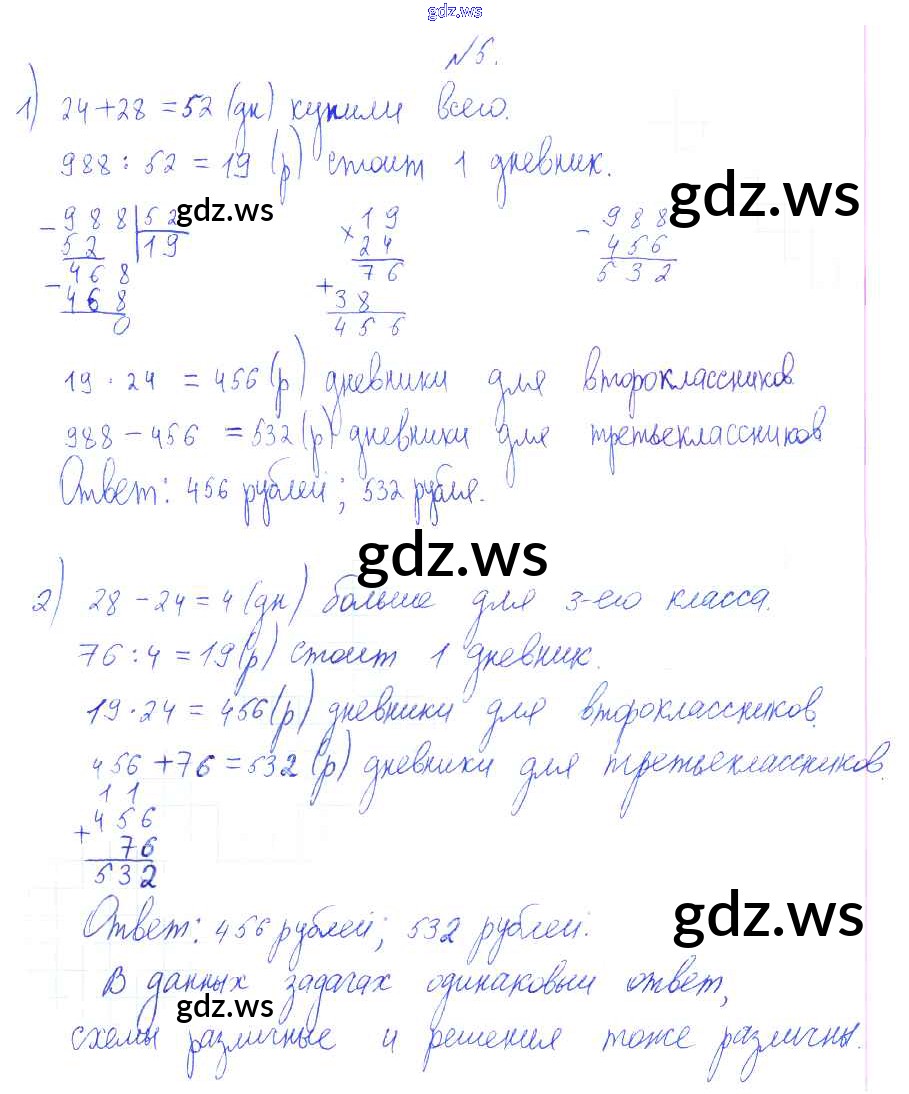 gdz.ws
№5.
1) 24+28=52 (дн) купили всего.
988:52=19 (р) стоит 1 дневник.
gdz.ws
gdz.ws
-988|52 ×19 -988
52 |19 24 456
-468 76 532
468 +38
0 456
19·24=456(р) дневники для второклассников
988-456=532(р) дневники для третьеклассников
Ответ: 456 рублей; 532 рубля.
gdz.ws
2) 28-24=4(дн) больше для 3-его класса.
76:4=19(р) стоит 1 дневник.
19·24=456(р) дневники для второклассников.
456+76=532(р) дневники для третьеклассников.
11
+456
76
532
Ответ: 456 рублей; 532 рублей.
gdz.ws
В данных задачах одинаковый ответ,
gdz.ws
схемы различные и решения тоже различны.